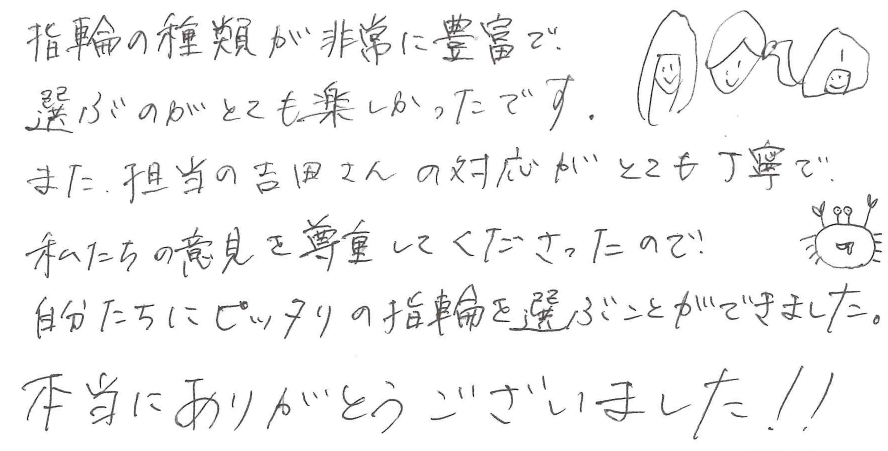 指輪の種類が非常に豊富で、
選ぶのがとても楽しかったです.
また、担当の吉田さんの対応がとても丁寧で、
私たちの意見を尊重してくださったので、
自分たちにピッタリの指輪を選ぶことができました。
本当にありがとうございました!!